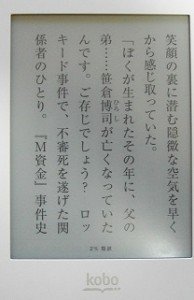 笑顔の裏に潜む隠微な空気を早く
から感じ取っていた。
「ぼくが生まれたその年に、父の
弟……笹倉博司が亡くなっていた
ひろし
んです。ご存じでしょう？　ロッ
キード事件で、不審死を遂げた関
係者のひとり。『M資金』事件史
kobo